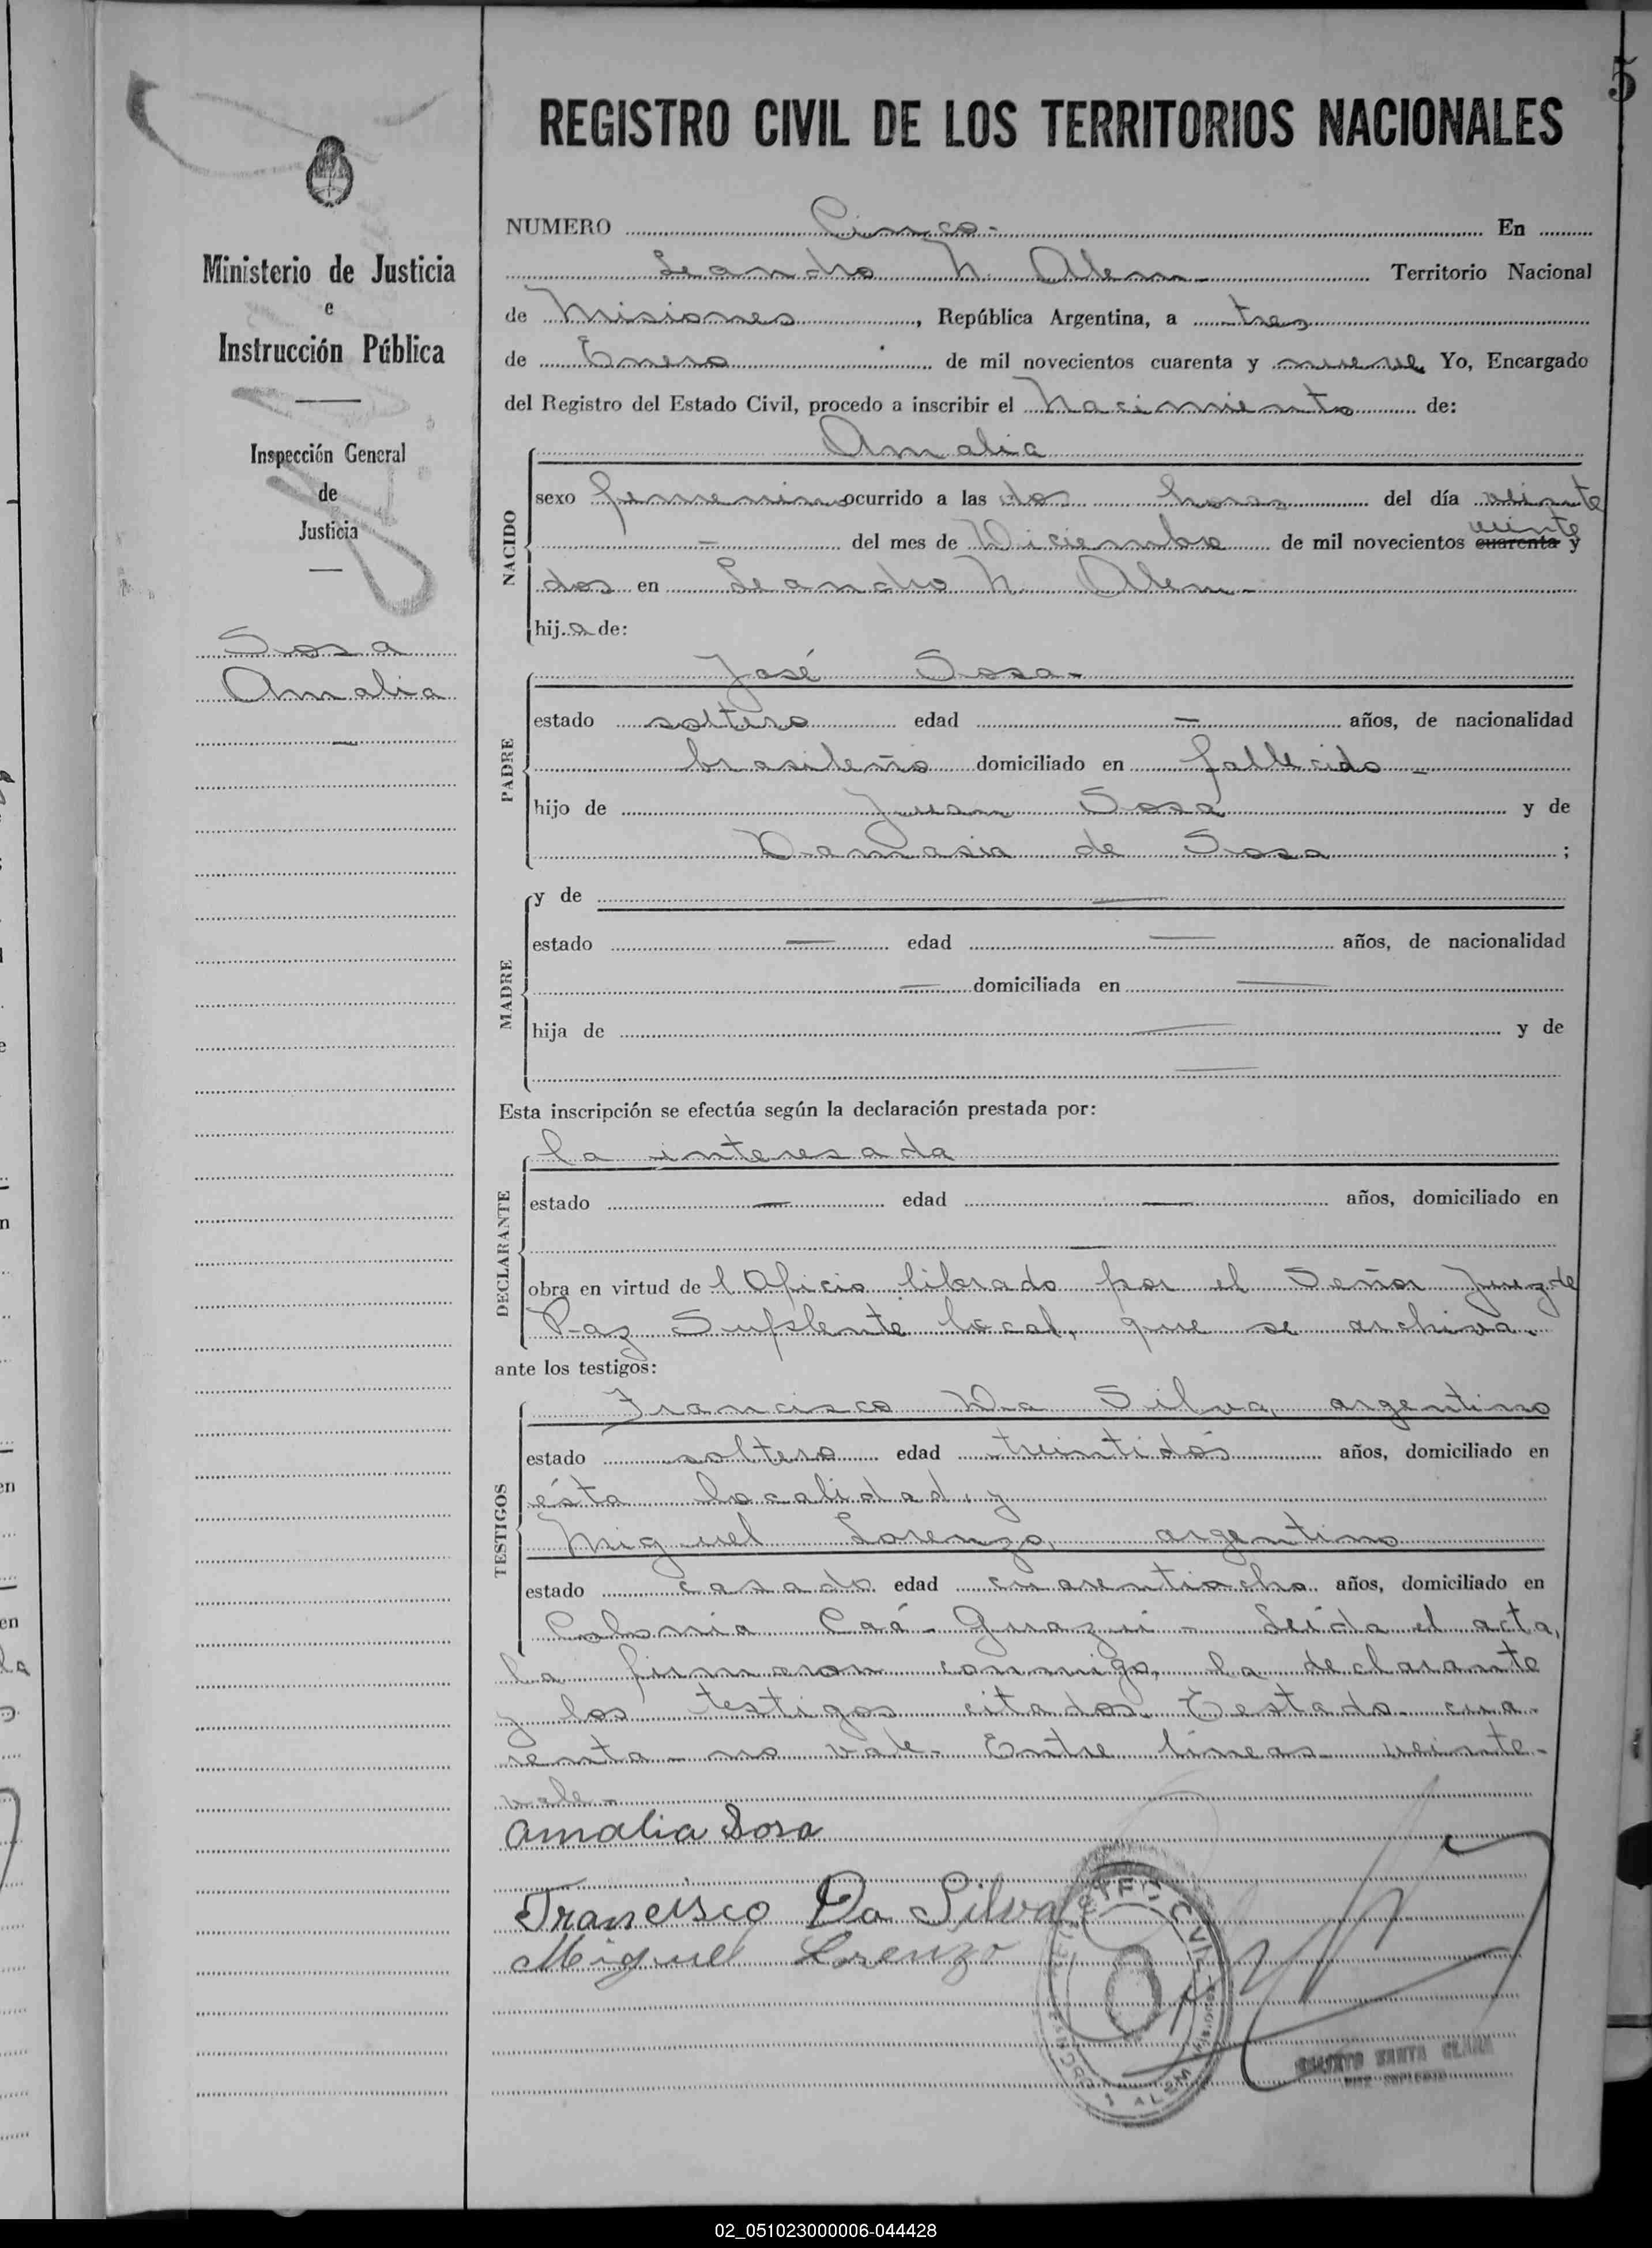 5
REGISTRO CIVIL DE LOS TERRITORIOS NACIONALES
Ministerio de Justicia
e
Instrucción Pública
Inspección General
de
Justicia
Sosa
Amalia
NUMERO Cinco- En
Leandro N. Alem- Territorio Nacional
de Misiones, República Argentina, a tres
de Enero de mil novecientos cuarenta y nueve Yo, Encargado
del Registro del Estado Civil, procedo a inscribir el Nacimiento de:
NACIDO
Amalia
sexo femenino ocurrido a las dos horas del día veinte
veinte
- del mes de Diciembre de mil novecientos cuarenta y
dos en Leandro N. Alem-
hija de:
PADRE
José Sosa-
estado soltero edad - años, de nacionalidad
brasileño domiciliado en fallecido-
hijo de Juan Sosa y de
Damasia de Sosa ;
MADRE
y de —
estado — edad — años, de nacionalidad
— domiciliada en —
hija de — y de
—
Esta inscripción se efectúa según la declaración prestada por:
DECLARANTE
la interesada
estado — edad — años, domiciliado en
—
obra en virtud de l Oficio librado por el Señor Juez de
Paz Suplente local, que se archiva.
ante los testigos:
TESTIGOS
Francisco Da Silva, argentino
estado soltero edad treintidós años, domiciliado en
ésta localidad, y
Miguel Lorenzo, argentino
estado casado edad cuarentiocho años, domiciliado en
Colonia Caá-Guazú - Leída el acta,
la firmaron conmigo, la declarante
y los testigos citados. Testado- cua-
renta- no vale- Entre líneas- veinte-
vale-
Amalia Sosa
Francisco Da Silva
Miguel Lorenzo
CIVIL
ALEM
SANTA CLARA
JUEZ SUPLENTE
02_051023000006-044428